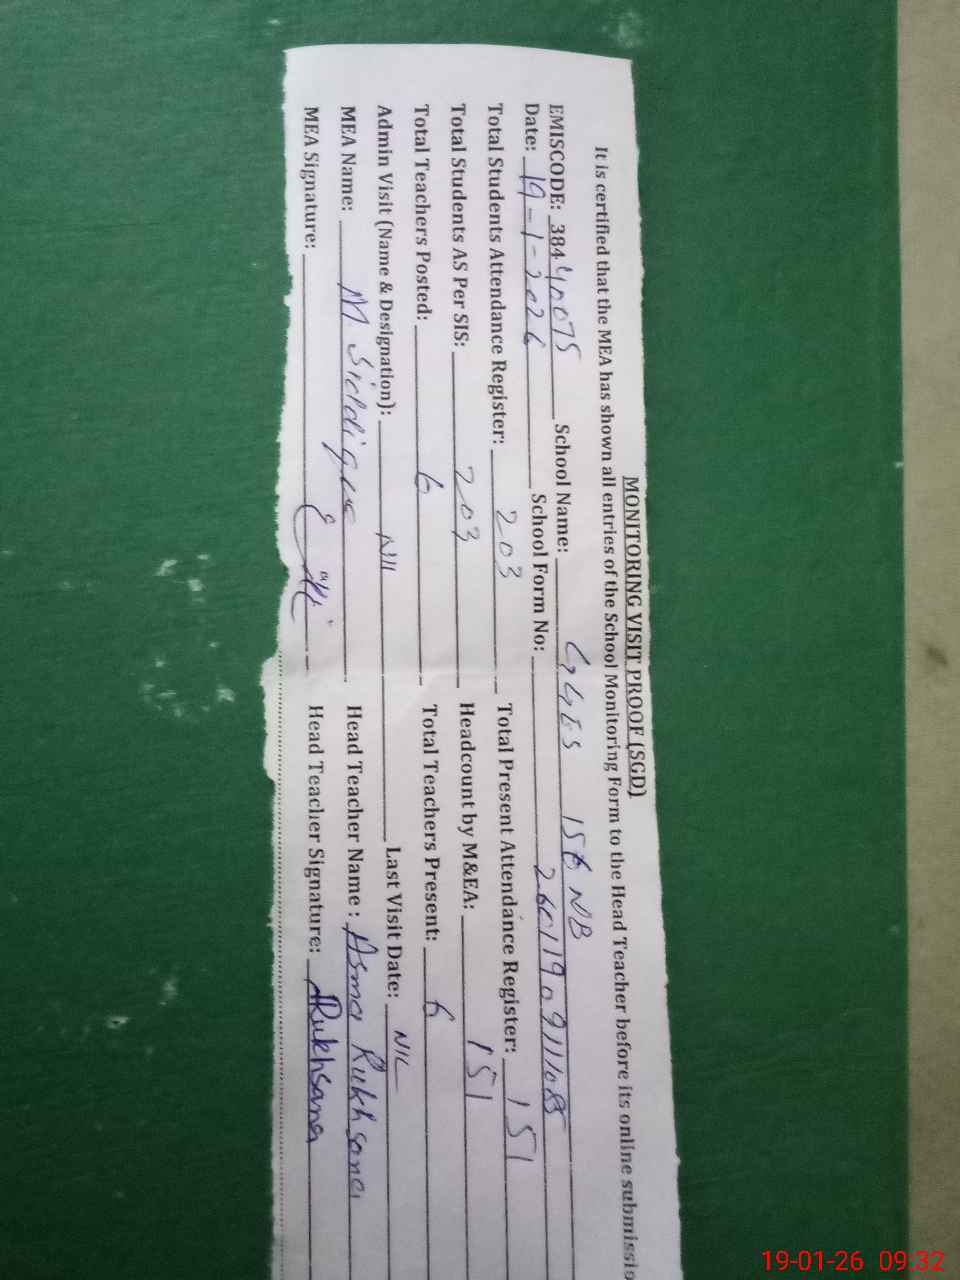 MONITORING VISIT PROOF (SGD)
It is certified that the MEA has shown all entries of the School Monitoring Form to the Head Teacher before its online submissio
EMISCODE: 38440075 School Name: GGES 15 NB
Date: 19-1-2026 School Form No:
Total Students Attendance Register: 203 Total Present Attendance Register: 151
Total Students AS Per SIS: 203 Headcount by M&EA: 151
Total Teachers Posted: 6 Total Teachers Present: 6
Admin Visit (Name & Designation): Nil Last Visit Date: NIL
MEA Name: M. Siddique Head Teacher Name: Asma Rukhsana
MEA Signature: Head Teacher Signature: ARukhsana
19-01-26 09:32